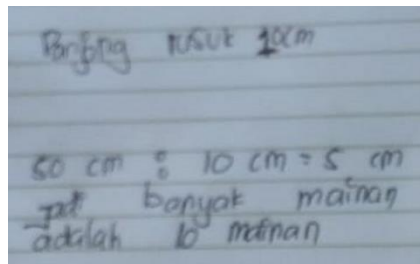 Panjang rusuk 10cm
50 cm : 10 cm = 5 cm
jadi banyak mainan
adalah 10 mainan